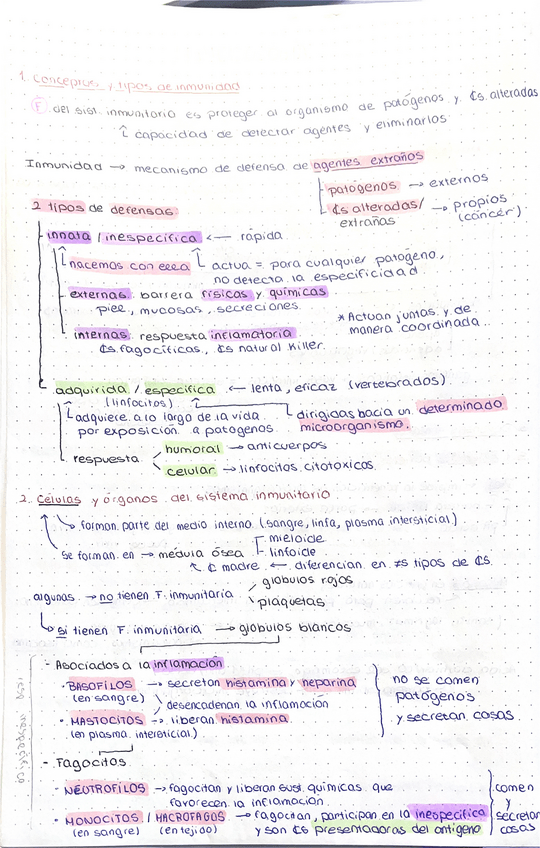 1. Conceptos y tipos de inmunidad
(F) del sist. inmunitario es proteger al organismo de patógenos y ₵s. alteradas
↑ capacidad de detectar agentes y eliminarlos
Inmunidad → mecanismo de defensa de agentes extraños
patógenos → externos
₵s alteradas/extrañas → propios (cáncer)
2 tipos de defensas
innata / inespecífica ← rápida
nacemos con ella
actua = para cualquier patógeno,
no detecta la especificidad
externas. barrera físicas y químicas
piel, mucosas, secreciones.
internas. respuesta inflamatoria
₵s. fagocíticas, ₵s natural killer.
* Actuan juntas y de
manera coordinada..
adquirida / específica ← lenta, eficaz (vertebrados)
(linfocitos)
adquiere a lo largo de la vida
por exposición a patogenos
dirigidas hacia un determinado
microorganismo.
respuesta
humoral → anticuerpos
celular → linfocitos citotoxicos
2. Células y órganos del sistema inmunitario
forman parte del medio interno (sangre, linfa, plasma intersticial)
se forman en → médula ósea
mieloide
linfoide
↖ ₵ madre ← diferencian en ≠s tipos de ₵s.
algunas → no tienen F. inmunitaria
globulos rojos
plaquetas
si tienen F. inmunitaria → globulos blancos
- Asociados a la inflamación
· BASOFILOS → secretan histamina y heparina
(en sangre)
desencadenan la inflamación
· MASTOCITOS → liberan histamina
(en plasma intersticial)
no se comen
patógenos
y secretan cosas
- Fagocitos
· NEUTROFILOS → fagocitan y liberan sust. químicas que
favorecen la inflamación.
· MONOCITOS / MACROFAGOS → fagocitan, participan en la inespecifica
(en sangre) (en tejido) y son ₵s presentadoras del antígeno
comen
y
secretan
cosas